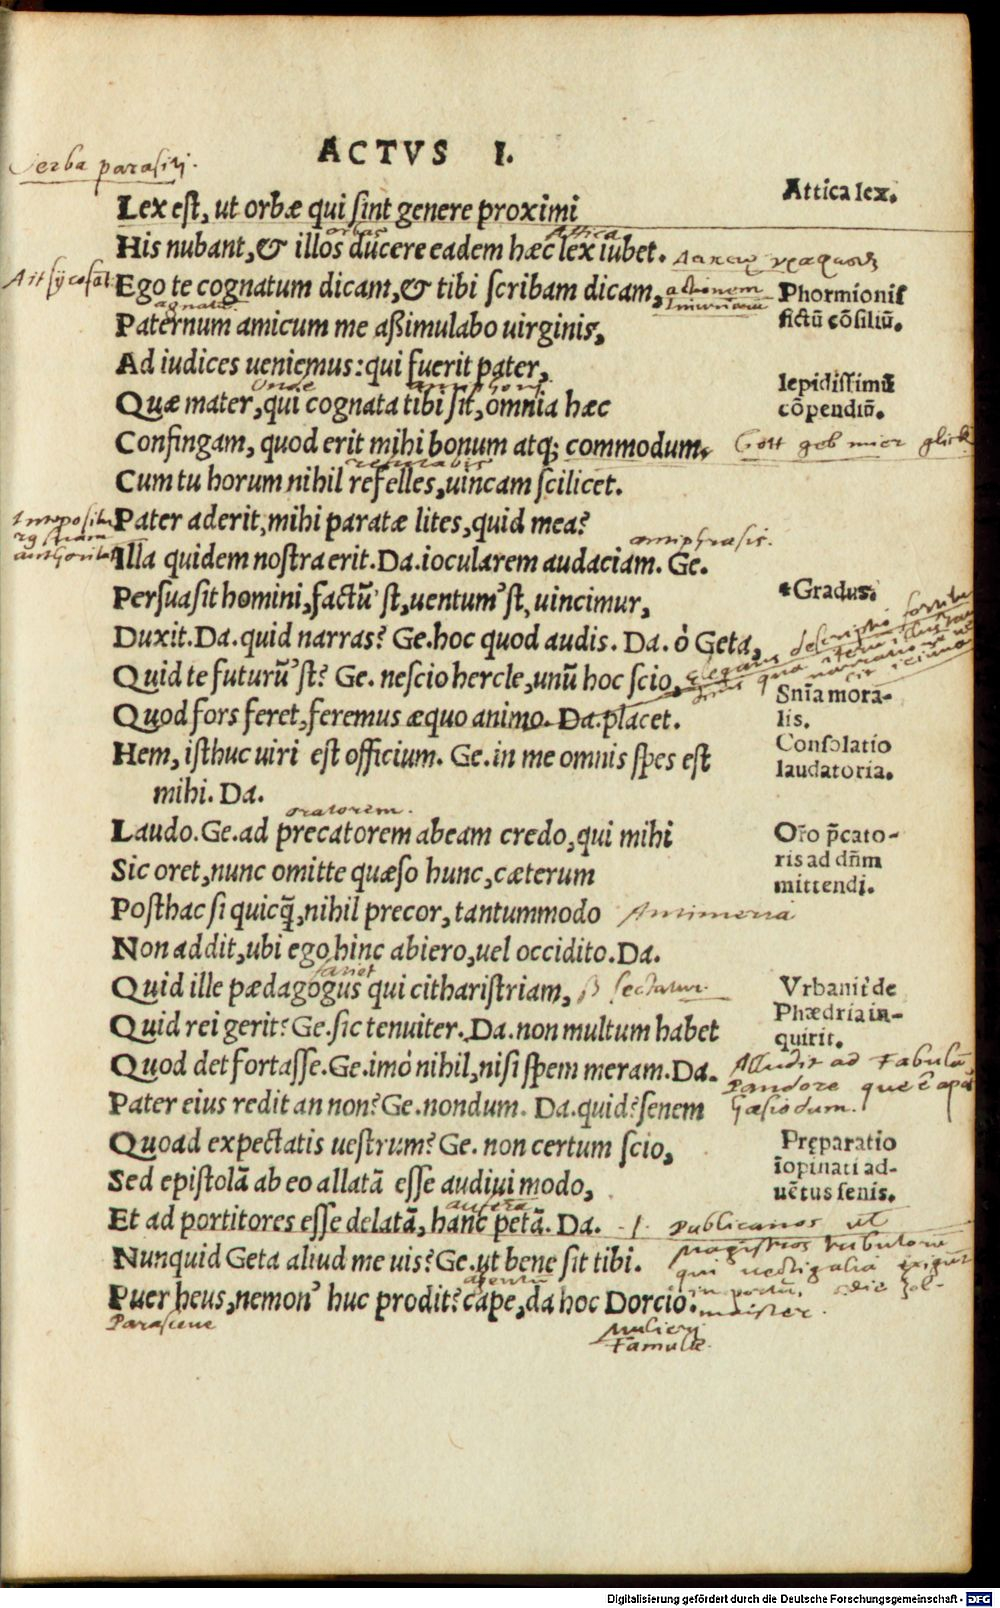 ACTVS I.
Verba parasiti.
Attica lex.
Lex est, ut orbæ qui sint genere proximi
orbas Attica
His nubant, & illos ducere eadem hæc lex iubet.
Ego te cognatum dicam, & tibi scribam dicam, actionem
Phormionis
agnatū
fictū cōsiliū.
Paternum amicum me aßimulabo uirginis,
Ad iudices ueniemus: qui fuerit pater,
lepidissimū
Quæ mater, qui cognata tibi sit, omnia hæc
cōpendiū.
Confingam, quod erit mihi bonum atq; commodum. Gott geb mier glick
Cum tu horum nihil refelles, uincam scilicet.
Pater aderit, mihi paratæ lites, quid mea?
antiphrasis.
Illa quidem nostra erit. Da. iocularem audaciam. Ge.
Persuasit homini, factū'st, uentum'st, uincimur,
*Gradus.
Duxit. Da. quid narras? Ge. hoc quod audis. Da. ô Geta,
Elegans descriptio
Quid te futurū'st? Ge. nescio hercle, unū hoc scio,
Snīa mora-
Quod fors feret, feremus æquo animo. Da. placet.
lis.
Consolatio
Hem, isthuc uiri est officium. Ge. in me omnis spes est
laudatoria.
mihi. Da.
oratorem.
Laudo. Ge. ad precatorem abeam credo, qui mihi
Oro p̄cato-
ris ad dn̄m
Sic oret, nunc omitte quæso hunc, cæterum
mittendi.
Posthac si quicq̄, nihil precor, tantummodo
Non addit, ubi ego hinc abiero, uel occidito. Da.
Quid ille pædagogus qui cithariſtriam, sectatur.
Vrbanit' de
Phædria in-
Quid rei gerit? Ge. sic tenuiter. Da. non multum habet
quirit.
Quod det fortasse. Ge. imò nihil, nisi spem meram. Da.
Alludit ad Fabulā
Pandore que ē apd
Pater eius redit an non? Ge. nondum. Da. quid? senem
Hæsiodum.
Quoad expectatis uestrum? Ge. non certum scio,
Pręparatio
īopinati ad-
Sed epistolā ab eo allatā esse audiui modo,
uētus senis.
Et ad portitores esse delatā, hanc petā. Da.
publicanos ut
magistros tributorū
Nunquid Geta aliud me uis? Ge. ut bene sit tibi.
qui uectigalia exigūt
in portu. die Zol-
Puer heus, nemon' huc prodit? cape, da hoc Dorcio.
maister.
Mulieri
Famulæ.
Digitalisierung gefördert durch die Deutsche Forschungsgemeinschaft - DFG